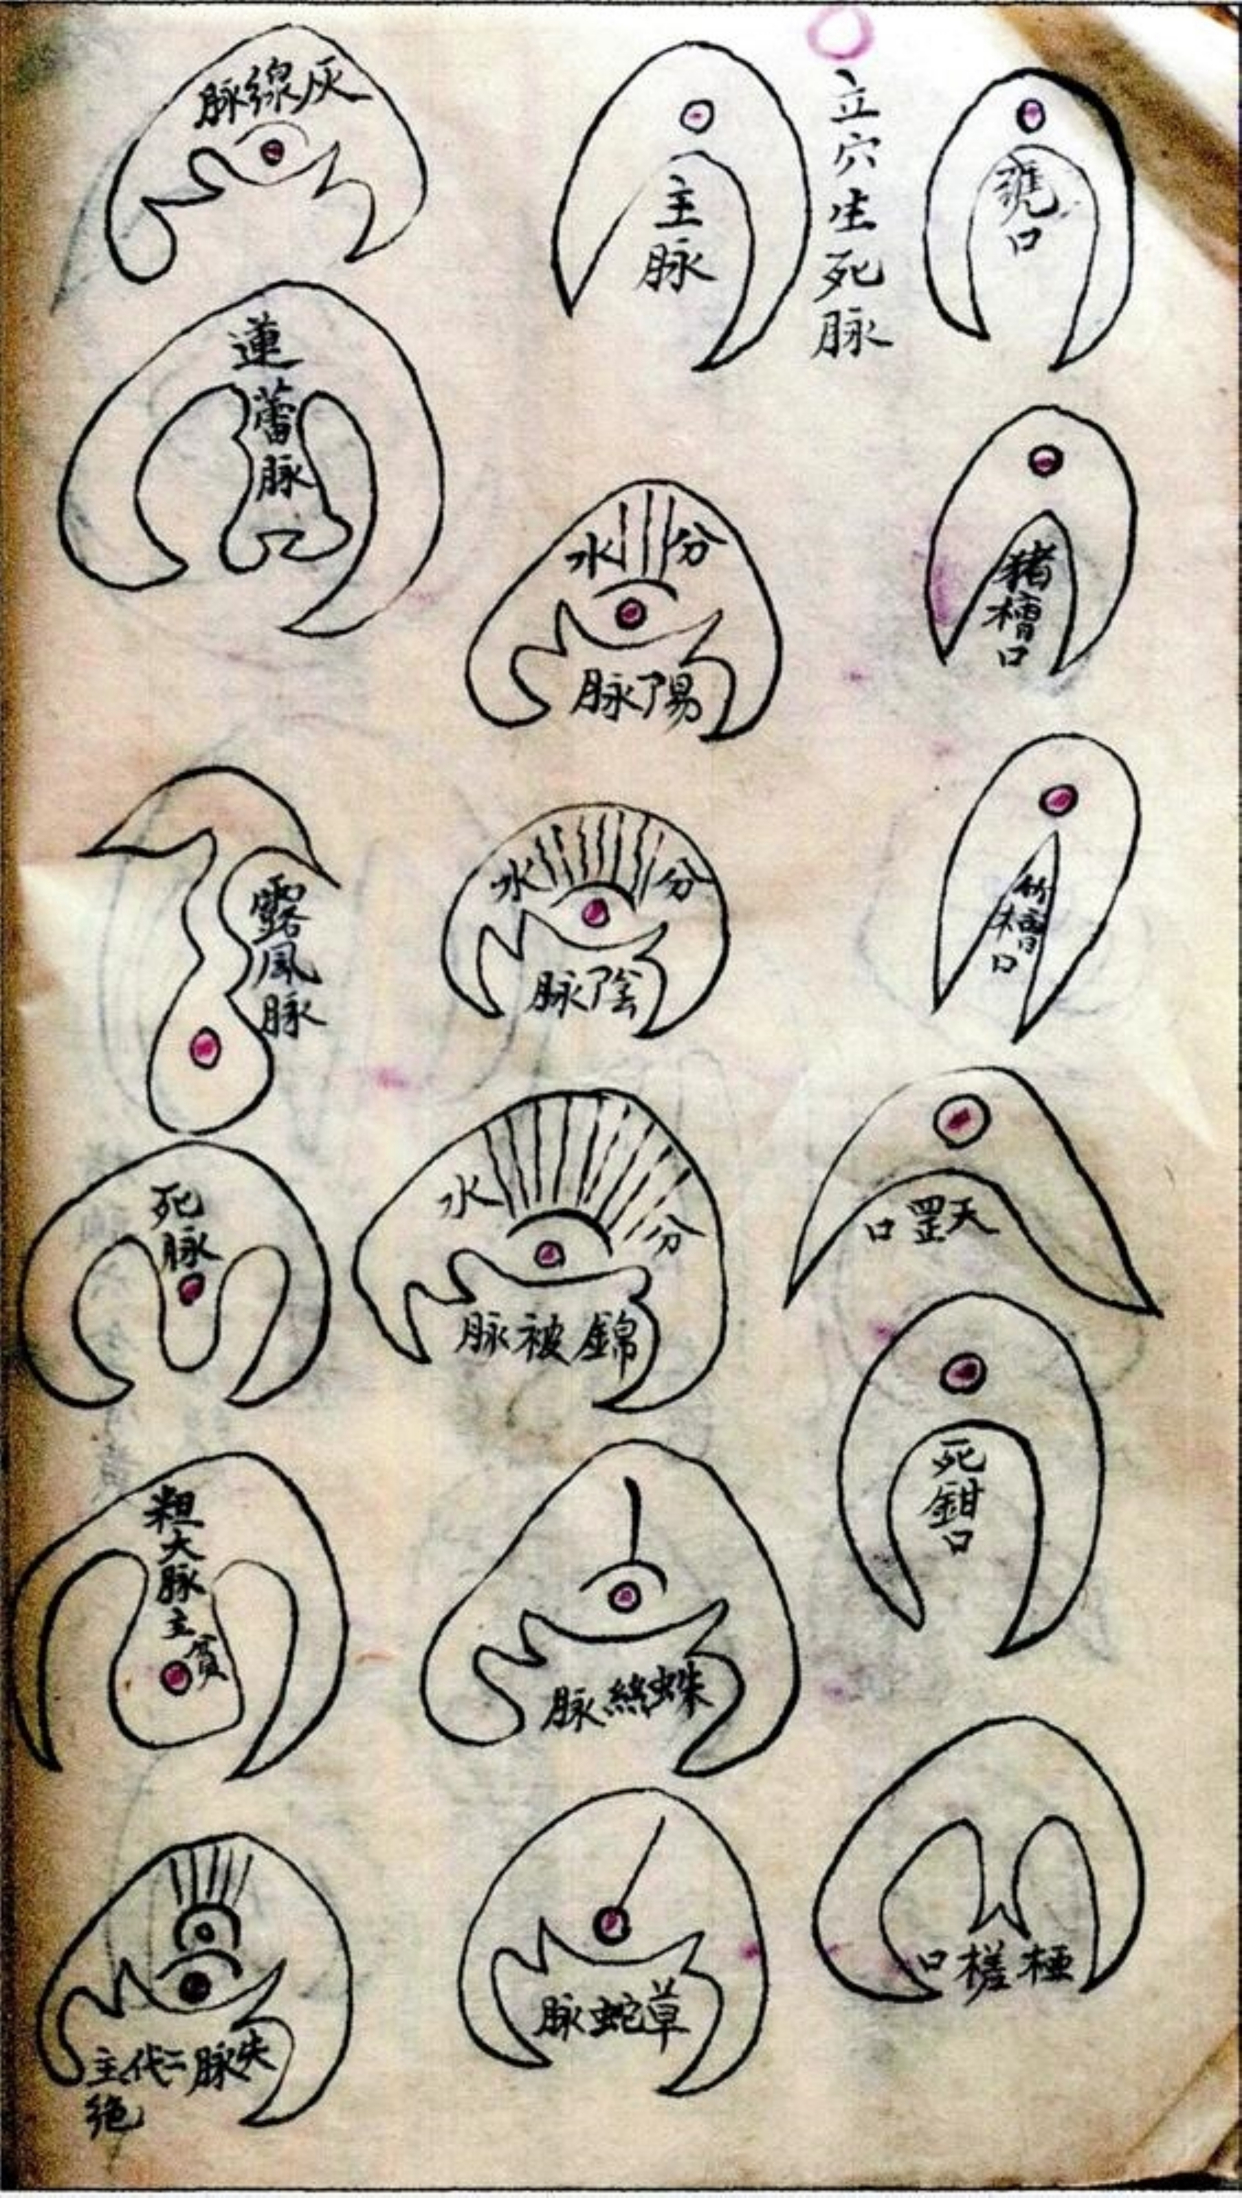 口
猪槽口
竹槽口
天罡口
死鉗口
槎口
立穴生死脉
主脉
分水
陽脉
分水
陰脉
分水
錦被脉
蛛絲脉
草蛇脉
灰線脉
蓮蕾脉
露風脉
死脉
粗大脉主貧
失脉二代主
绝